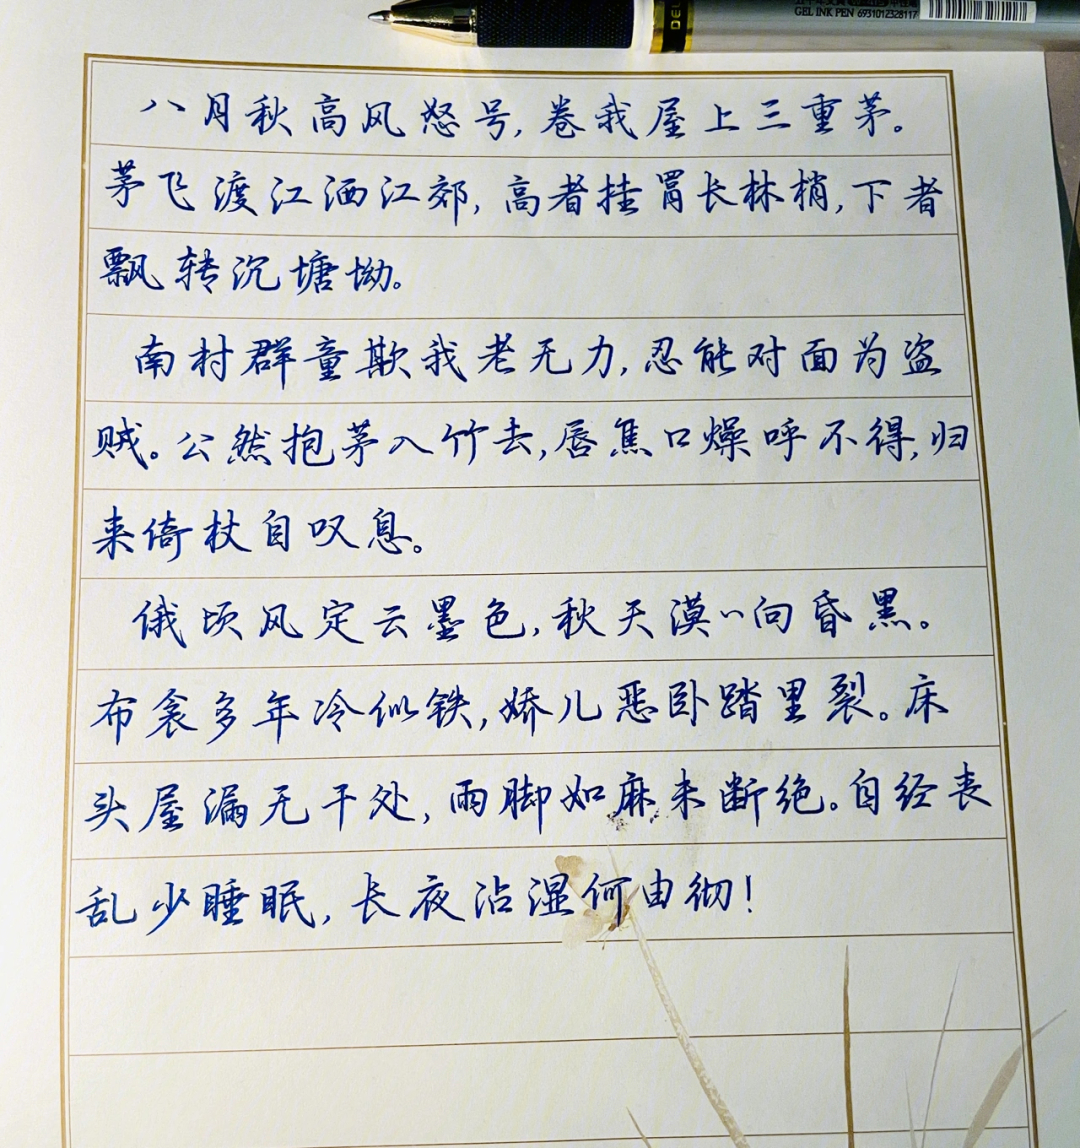 GEL INK PEN 6931012328117
DEL
八月秋高风怒号,卷我屋上三重茅。
茅飞渡江洒江郊,高者挂罥长林梢,下者
飘转沉塘坳。
南村群童欺我老无力,忍能对面为盗
贼。公然抱茅入竹去,唇焦口燥呼不得,归
来倚杖自叹息。
俄顷风定云墨色,秋天漠〃向昏黑。
布衾多年冷似铁,娇儿恶卧踏里裂。床
头屋漏无干处,雨脚如麻未断绝。自经丧
乱少睡眠,长夜沾湿何由彻!